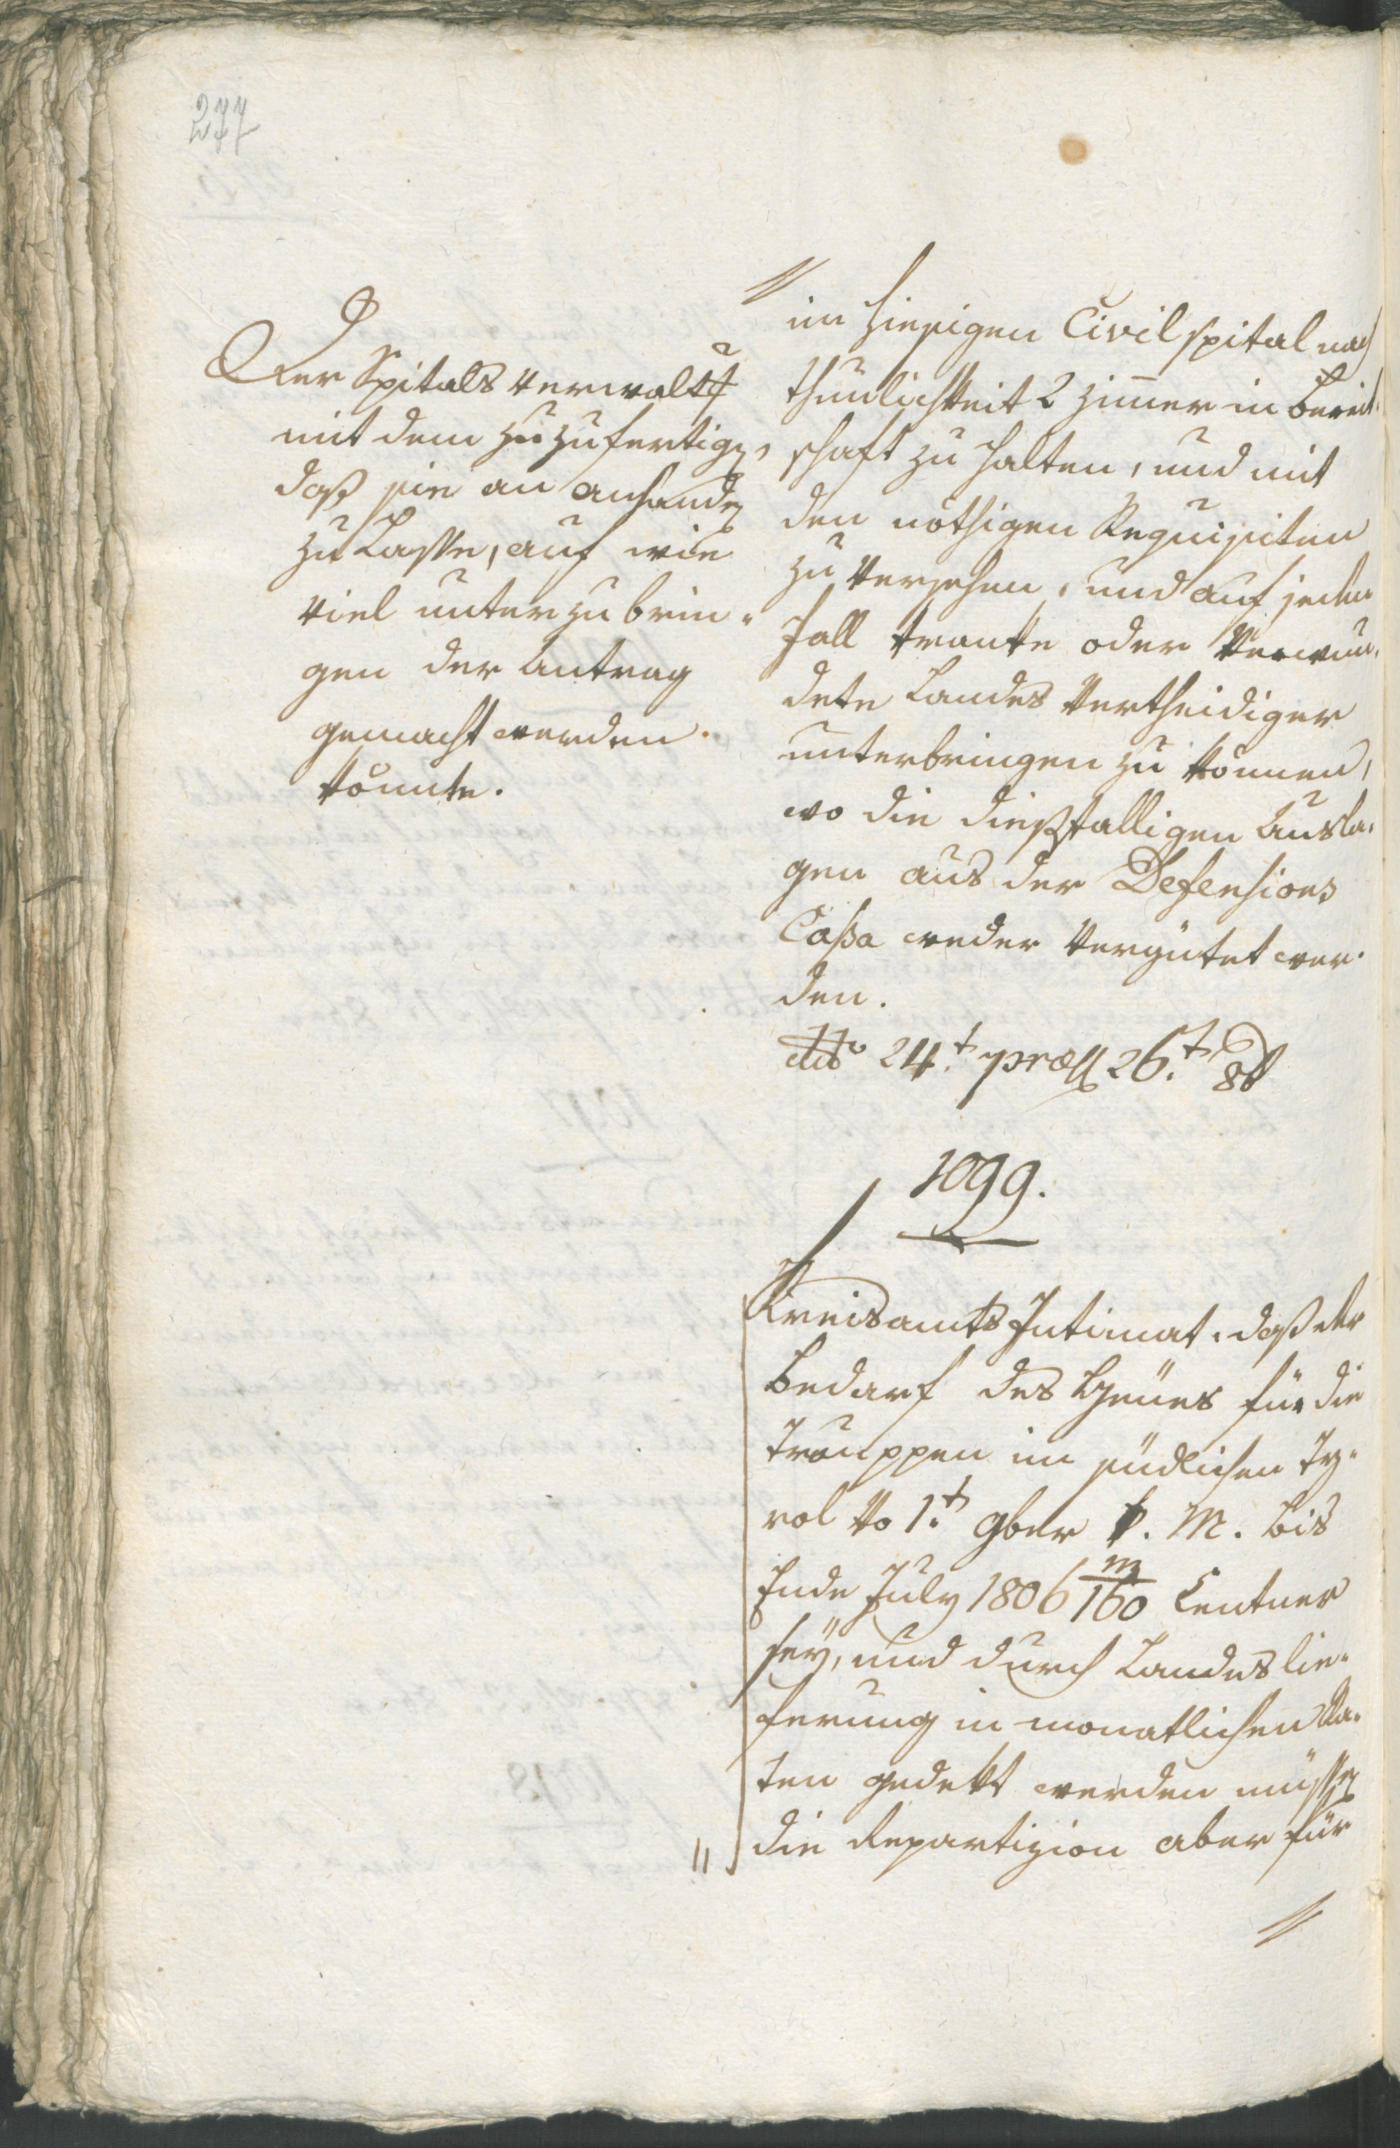 277
Der Spitals Verwaltg
mit dem zuzufertigen,
daß sie an Anhanden
zu Lassen, auf wie
viel unterzubrin„
gen der Antrag
gemacht werden
könnte.
im hiesigen Civilspital nach
thunlichkeit 2 Zimmer in Bereit
schaft zu halten, und mit
den nöthigen Requisiten
zu versehen, und auf jeden
Fall kranke oder Verwun„
dete Landes Vertheidiger
unterbringen zu können,
wo die dießfalligen Ausla„
gen aus der Defensions
Cassa wieder vergütet wer„
den.
dto 24.t præs 26.t 8b
1099.
Kreisamts Intimat, daß der
Bedarf des Heues für die
Trouppen im südlichen Ty„
rol vo 1.t 9ber k. M. bis
Ende July 1806 m/160 Centner
seÿ, und durch Landeslie„
ferung in monatlichen Ra„
ten gedekt werden müssen
die Repartizion aber für